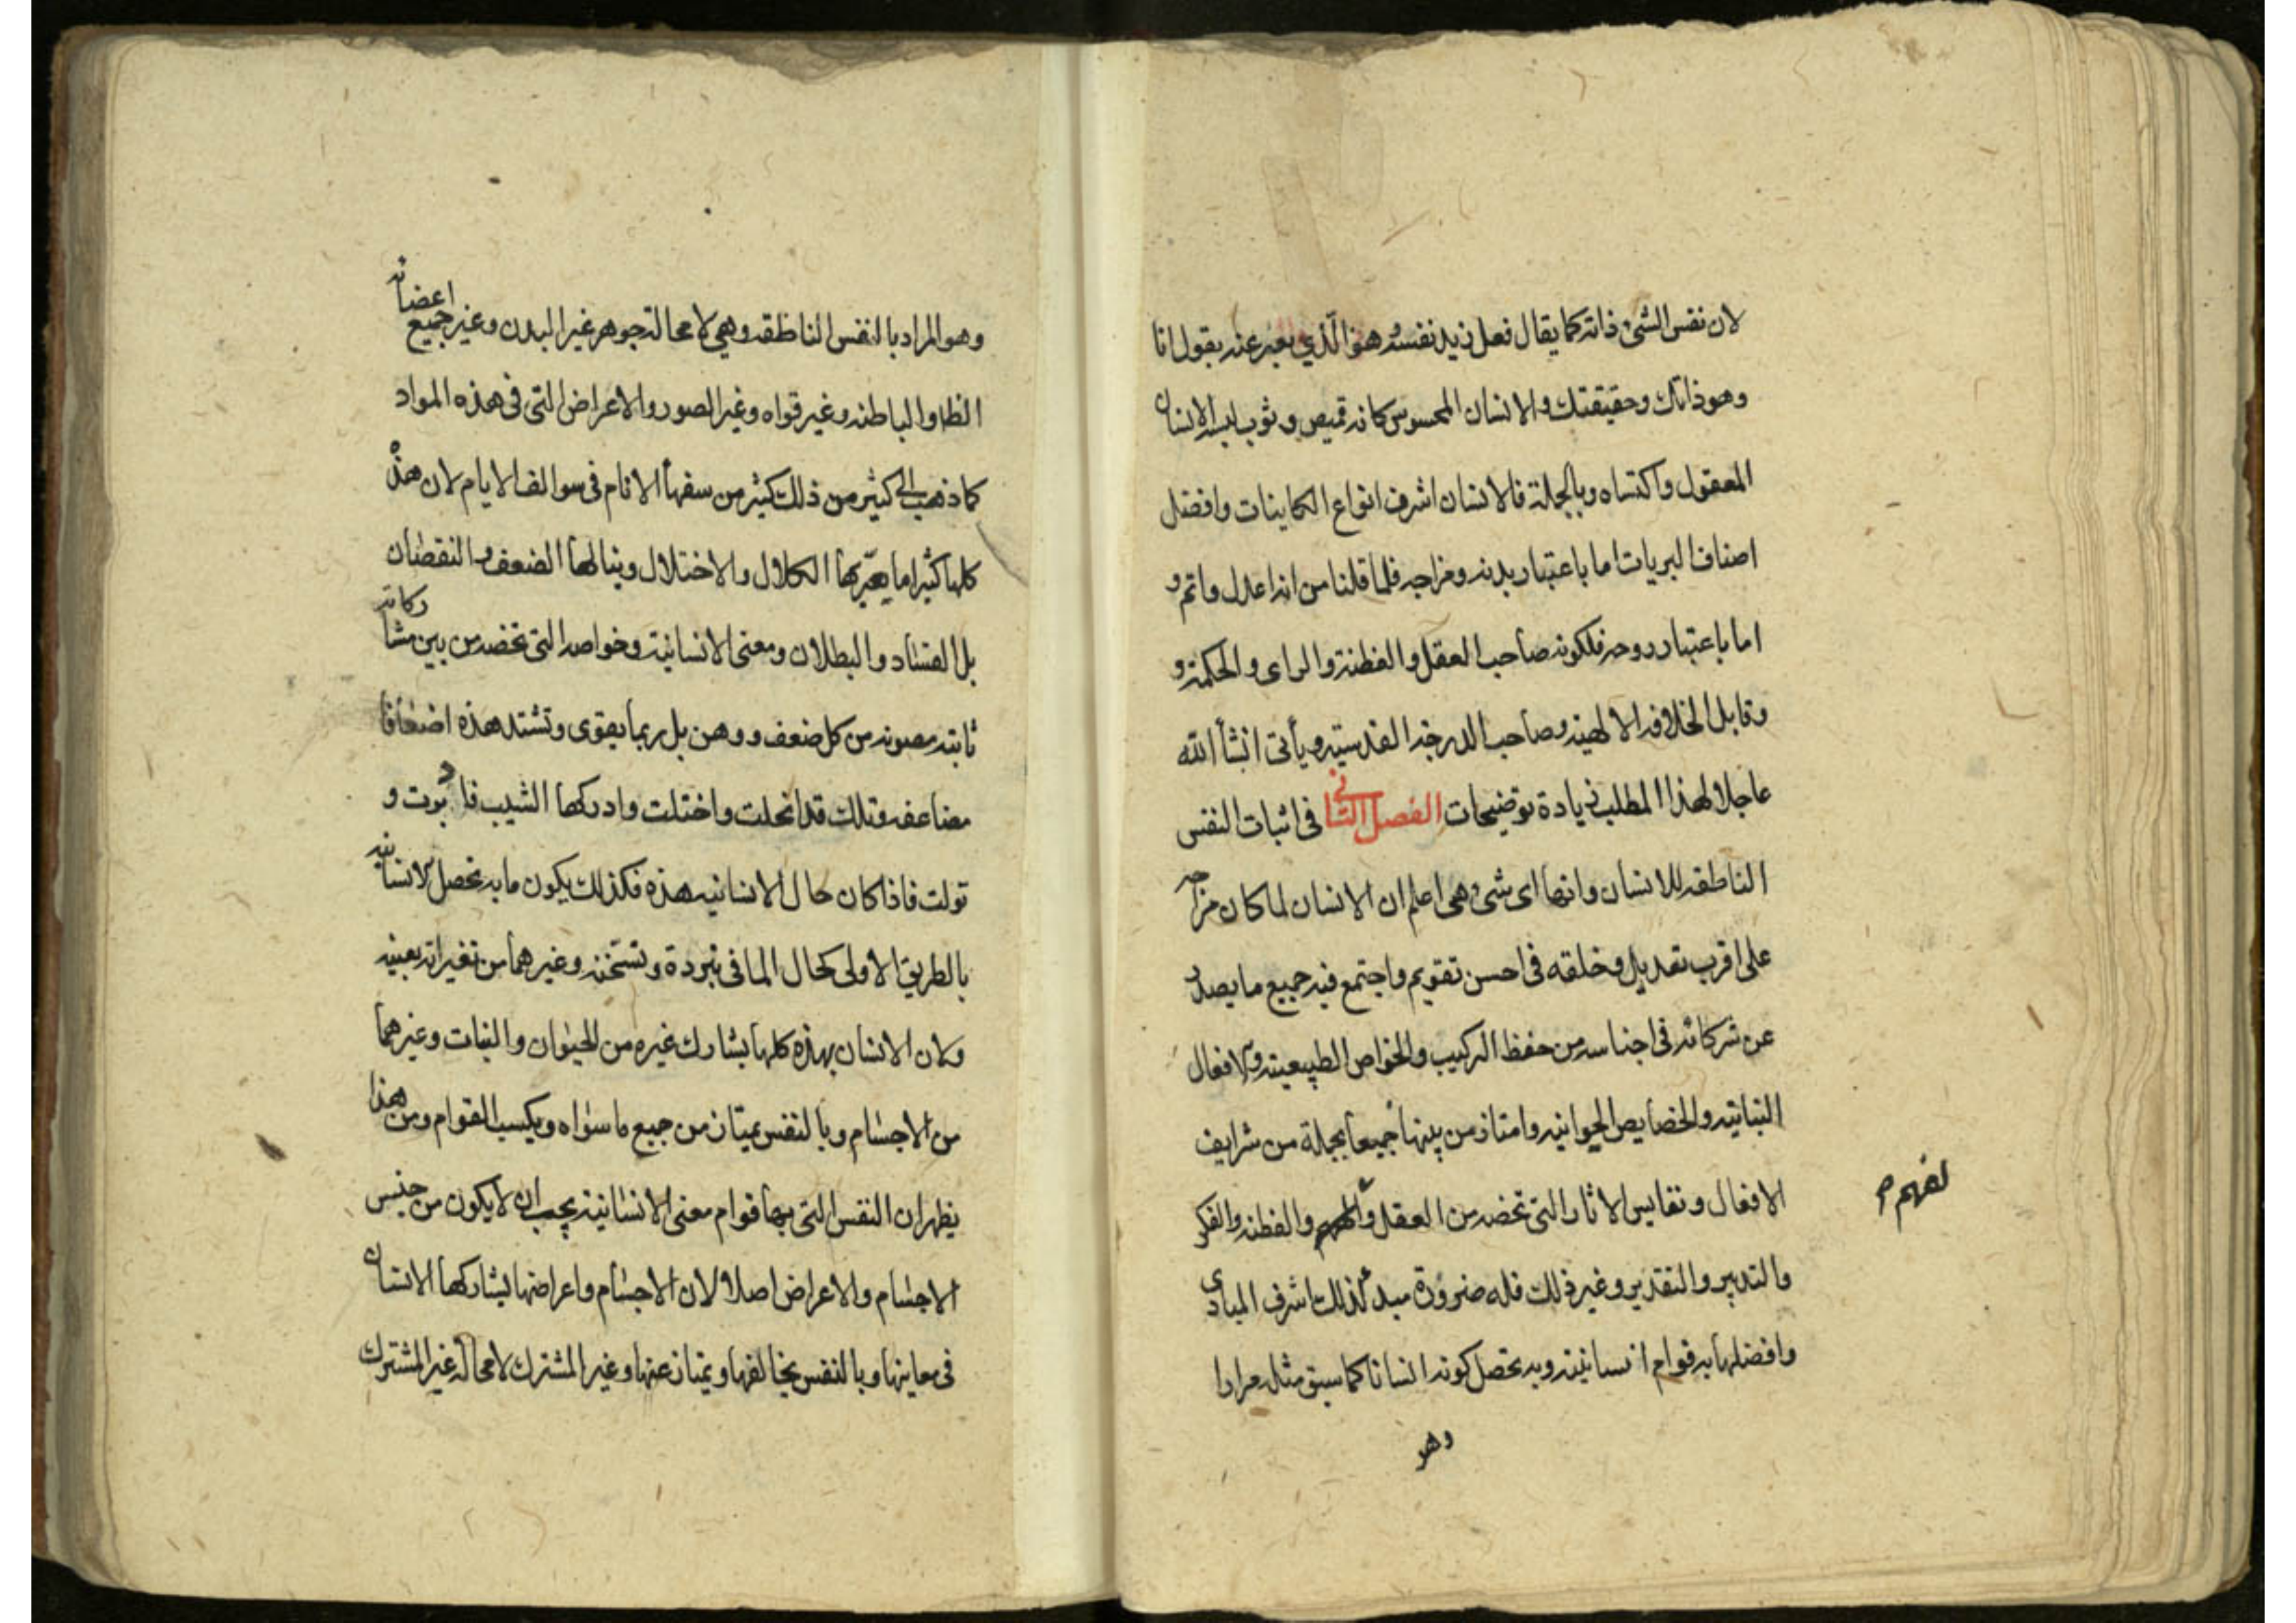 لان نفس الشئ ذاته كما يقال فعل زيد نفسه هو الذي يعبر عنه بقول انا
وهو ذاتك وحقيقتك والانسان المحسوس كانه قميص وثوب لبسه الانسان
المعقول واكتساه وبالجملة فالانسان اشرف انواع الكاينات وافضل
اصناف البريات اما باعتبار بدنه ومزاجه فلما قلنا من انه اعدل واتم و
اما باعتبار روحه فلكونه صاحب العقل والفطنة والراى والحكمة و
وقابل الخلافه الالهيه وصاحب الدرجة القدسيه ويأتى انشأ الله
عاجلا لهذا المطلب زيادة توضيحات الفصل الثانى فى اثبات النفس
الناطقه للانسان وانها اى شئ هى اعلم ان الانسان لما كان مزاجه
على اقرب تعديل وخلقه فى احسن تقويم واجتمع فيه جميع ما يصدر
عن شركائه فى اجناسه من حفظ التركيب والخواص الطبيعيه والافعال
النباتيه والخصايص الحيوانيه وامتاز من بينها جميعا بجملة من شرايف
الافعال ونفايس الاثار التى تخصه من العقل والفهم والفطنه والفكر
لفهم م
والتدبير والتقدير وغير ذلك فله ضرورة مبدء لذلك اشرف المبادى
وافضلها به قوام انسانيته وبه تحصل كونه انسانا كما سبق مثله مرارا
وهو
وهو المراد بالنفس الناطقه وهى لا محالة جوهر غير البدن وغير جميع اعضائه
الظا والباطنه وغير قواه وغير الصور والاعراض التى فى هذه المواد
كما ذهب الى كثير من ذلك كثير من سفهأ الانام فى سوالف الايام لان هذه
كلها كثيرا ما يعتريها الكلال والاختلال وينالها الضعف والنقصان
بل الفساد والبطلان ومعنى الانسانية وخواصه التى تخصه من بين مشاركاته
ثابته مصونه من كل ضعف ووهن بل ربما يقوى وتشتد هذه اضعافا
مضاعفه وتلك قد انحلت واختلت وادركها الشيب فادبرت و
تولت فاذا كان حال الانسانيه هذه فكذلك يكون ما به تحصل الانسانيه
بالطريق الاولى كحال الما فى تبرده وتسخنه وغيرهما من تغيراته بعينه
ولان الانسان بهذه كلها يشارك غيره من الحيوان والنبات وغيرهما
من الاجسام وبالنفس يمتاز من جميع ما سواه ويكسب القوام ومن هذا
يظهر ان النفس التى بها قوام معنى الانسانية يجب ان لا يكون من جنس
الاجسام والاعراض اصلا لان الاجسام واعراضها يشاركها الانسان
فى معاينها وبالنفس يخالفها ويمتاز عنها وغير المشترك لا محالة غير المشترك